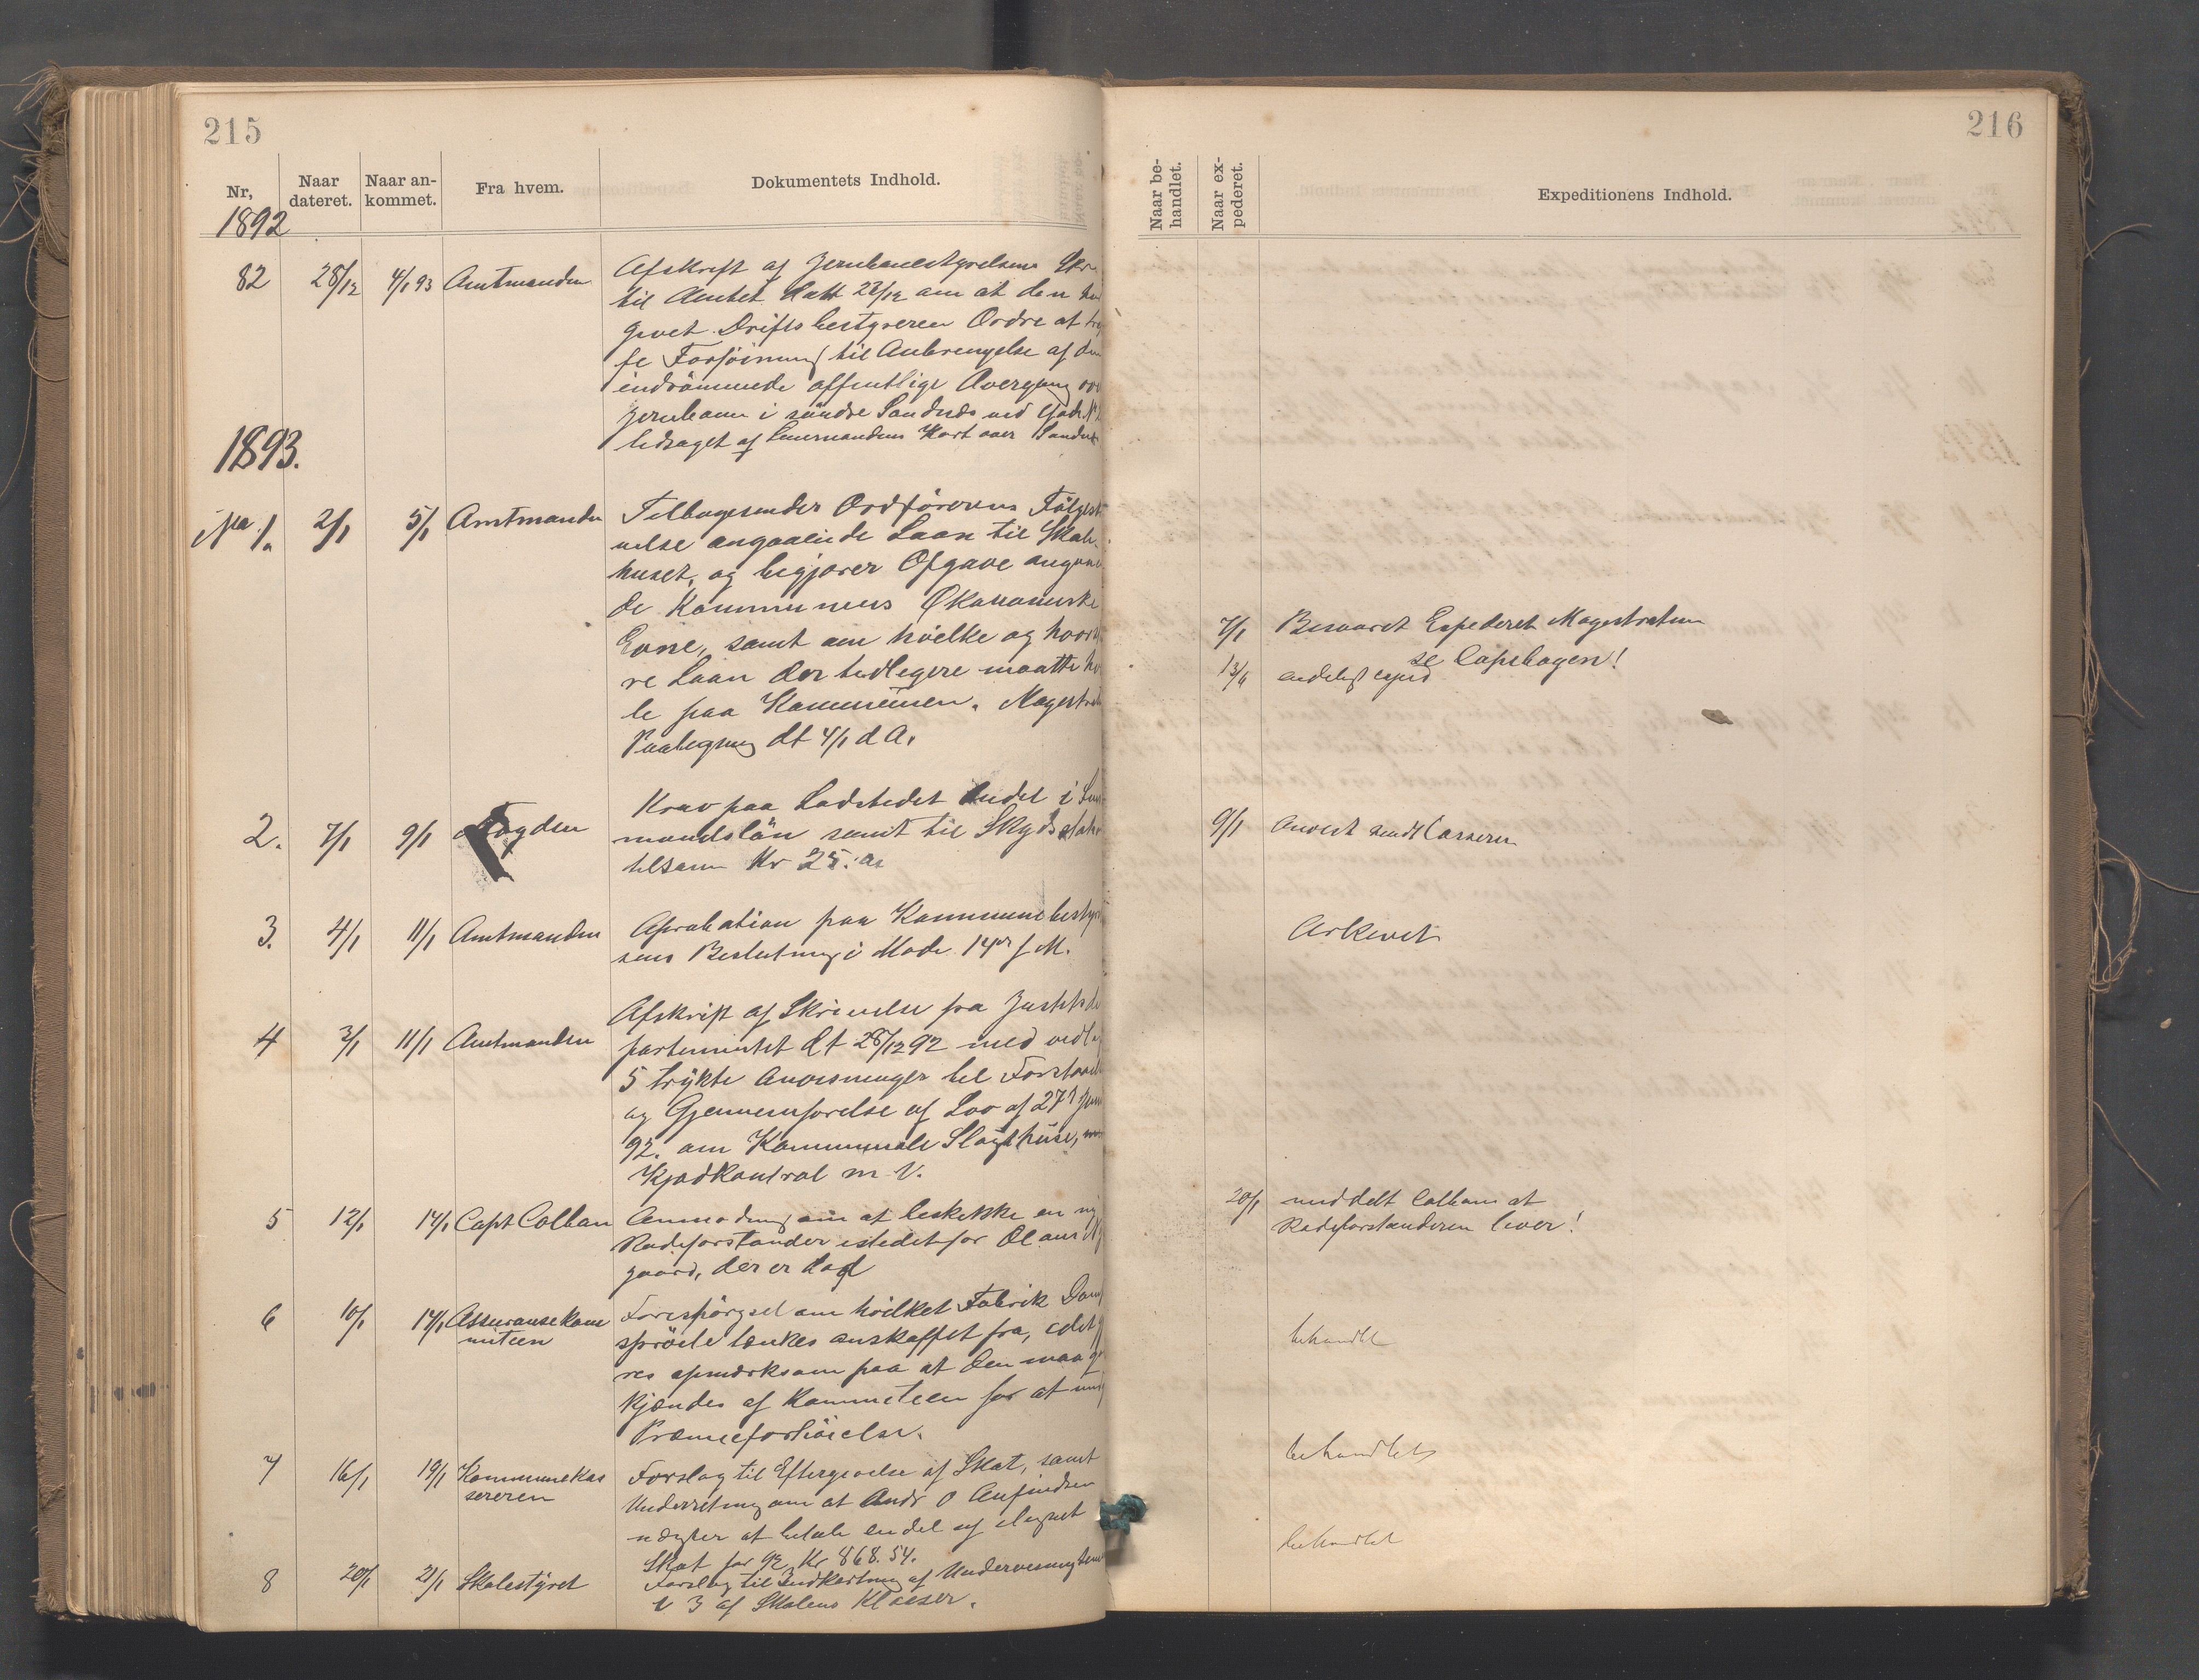 215
Nr,
Naar dateret.
Naar ankommet.
Fra hvem.
Dokumentets Indhold.
1892
82 28/12 4/1 93 Amtmanden
Afskrift af Jernbanestyrelsens Skri
til Amtet datt 28/12 om at den ha
givet Driftsbestyreren Ordre at træ
fe Forföining til Anbrengelse af den
indrömmede offentlige Overgang ov
Jernbanen i söndre Sandnæs ved
ledraget af Lensmandens Kart over Sandn
1893.
No 1. 2/1 5/1 Amtmanden
Tilbagesender Ordförerens Fölgesk
velse angaaende Laan til Skole
huset, og begjærer Opgave angaae
de Kommunens Økonomiske
Evne, samt om hvilke og hvor
re Laan der tidligere maatte h
le paa Kommunen. Magestrat
Paategning dt 4/1 d A.
2. 7/1 9/1 Fogden
Krav paa Ladstedet Andel i Len
mandslön samt til Skyds
tilsam Kr 25:
3. 4/1 11/1 Amtmanden
Aprobation paa Kommunebestyr
sens Beslutning i Mode 14de f M.
4 3/1 11/1 Amtmanden
Afskrift af Skrivelse fra Justitsde
partementet dt 28/12 92 med vedl
5 trykte Anvisninger til Forstaael
og Gjennemforelse af Lov af 27de Jun
92. om Kommunale Slagthuse,
Kjødkontrol m V.
5 12/1 14/1 Capt Colban
Anmodning om at beskikke en ny
Rodeforstander istedetfor Olaus N
gaard, der er død
6 10/1 14/1 Assuransekom
miteen
Forespörgsel om hvilket Fabrik Dam
spröite tænkes anskaffet fra, idet gj
res opmærksom paa at den maa go
kjendes af Kommiteen for at und
Præmieforhöielse.
7 16/1 19/1 Kommunekas
sereren
Forslag til Eftergivelse af Skat, samt
Underretning om at Andr O Aufindsen
nægter at betale en del af
Skat for 92 Kr 868.54.
8 20/1 21/1 Skolestyret
Forslag til Indkortning af Undervisning
i 3 af Skolens Klasser.
216
Naar behandlet.
Naar expederet.
Expeditionens Indhold.
7/1 Besvaret Expederet Magestraten
se Copibogen!
13/4 endelig exped
9/1 Anvist sendt Casseren
Arkivet
20/1 meddelt Colban at
Rodeforstanderen lever!
behandlet
behandlet
behandlet